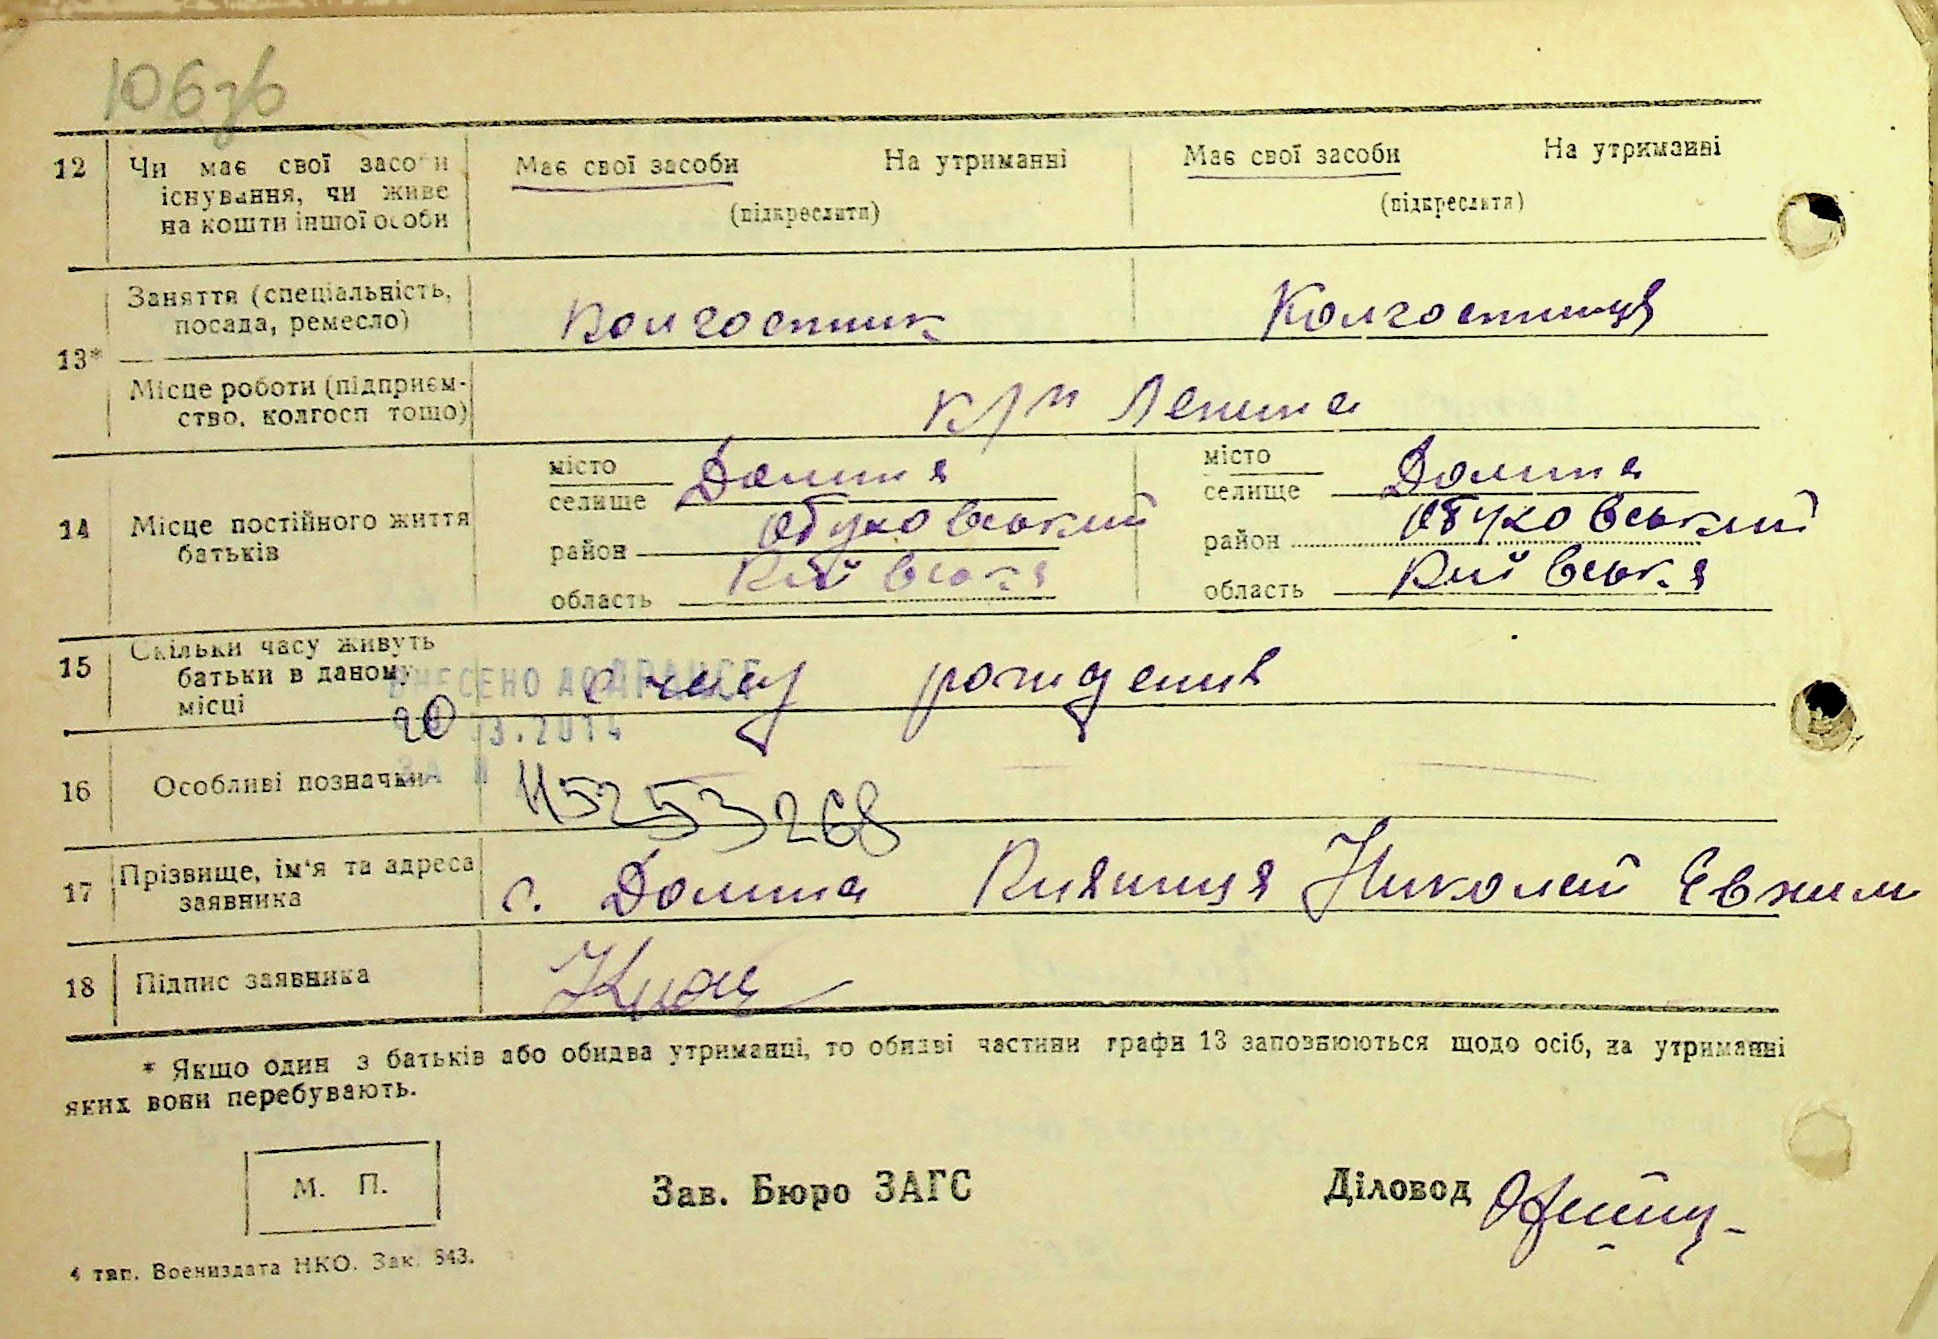 106зв
12 Чи має свої засоби Має свої засоби На утриманні Має свої засоби На утриманні
існування, чи живе
на кошти іншої особи (підкреслити) (підкреслити)
Заняття (спеціальність,
посада, ремесло) Колгоспник Колгоспниця
13*
Місце роботи (підприєм-
ство, колгосп тощо) к/г Леніна
місто Долина місто Долина
селище селище
14 Місце постійного життя Обуховський Обуховський
батьків район район
Київська Київська
область область
15 Скільки часу живуть
батьки в даному с часу рождения
місці
ВНЕСЕНО ДО ДРАЦСГ
20 .3.2014
ЗА №
16 Особливі позначки 115253268
17 Прізвище, ім'я та адреса с. Долина Кияниця Николай Евхим
заявника
18 Підпис заявника
* Якщо один з батьків або обидва утриманці, то обидві частини графи 13 заповнюються щодо осіб, на утриманні
яких вони перебувають.
М. П. Зав. Бюро ЗАГС Діловод
4 тип. Воениздата НКО. Зак. 843.